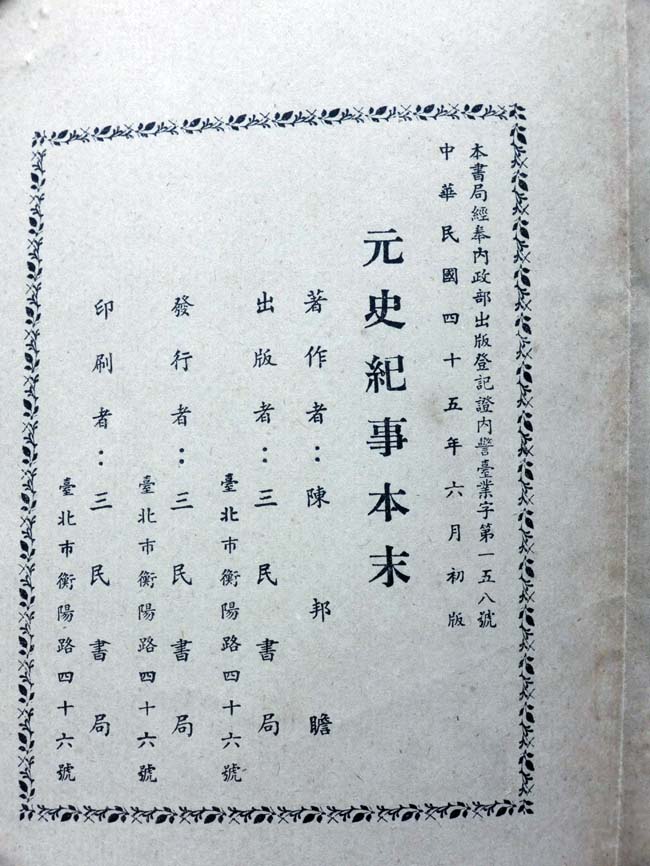 本書局經奉內政部出版登記證內警臺業字第一五八號
中華民國四十五年六月初版
元史紀事本末
著作者：陳邦瞻
出版者：三民書局
臺北市衡陽路四十六號
發行者：三民書局
臺北市衡陽路四十六號
印刷者：三民書局
臺北市衡陽路四十六號